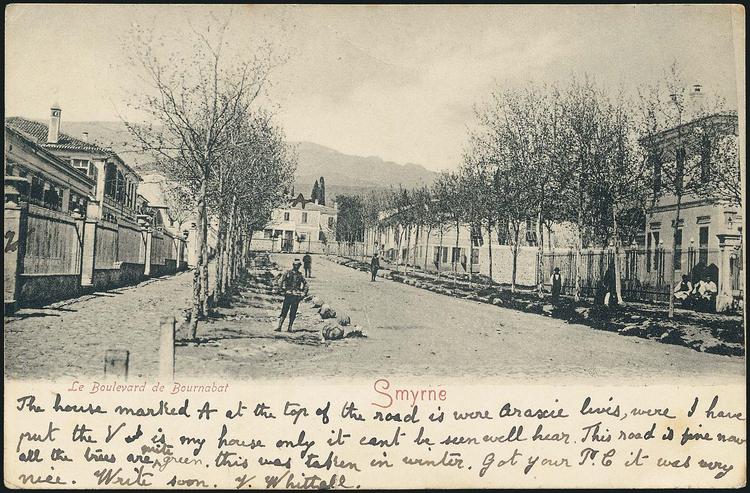 Le Boulevard de Bournabat
Smyrne
The house marked A at the top of the road is were Araxie livis, were I have
put the V I is my house only it cant be seen well hear. This road is fine now
all the trees are quite green. this was taken in winter. Got your P.C it was very
nice. Write soon. V. Whittall.